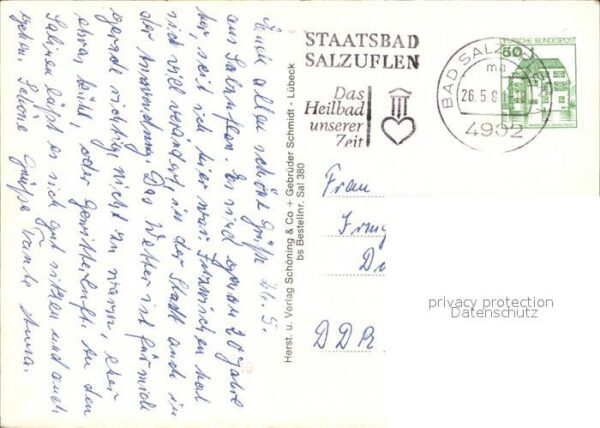 Euch allen schöne Grüße 26.5.
aus Salzuflen. Es sind genau 20 Jahre
her, seit ich hier war. Inzwischen hat
sich viel verändert, in der Stadt auch in
der Anwendung. Das Wetter ist für mich
gerade richtig, nicht zu warm, eher
etwas kühl, oder Gewitterluft. In den
Salinen läßt es sich gut sitzen und auch
gehen. Schöne Grüße Tante Anna.
Herst. u. Verlag Schöning & Co + Gebrüder Schmidt - Lübeck
bs Bestellnr. Sal 380
STAATSBAD
SALZUFLEN
Das
Heilbad
unserer
Zeit
BAD SALZUFLEN
ma
26.5.81
4902
DEUTSCHE BUNDESPOST
50
Frau
DDR
privacy protection
Datenschutz